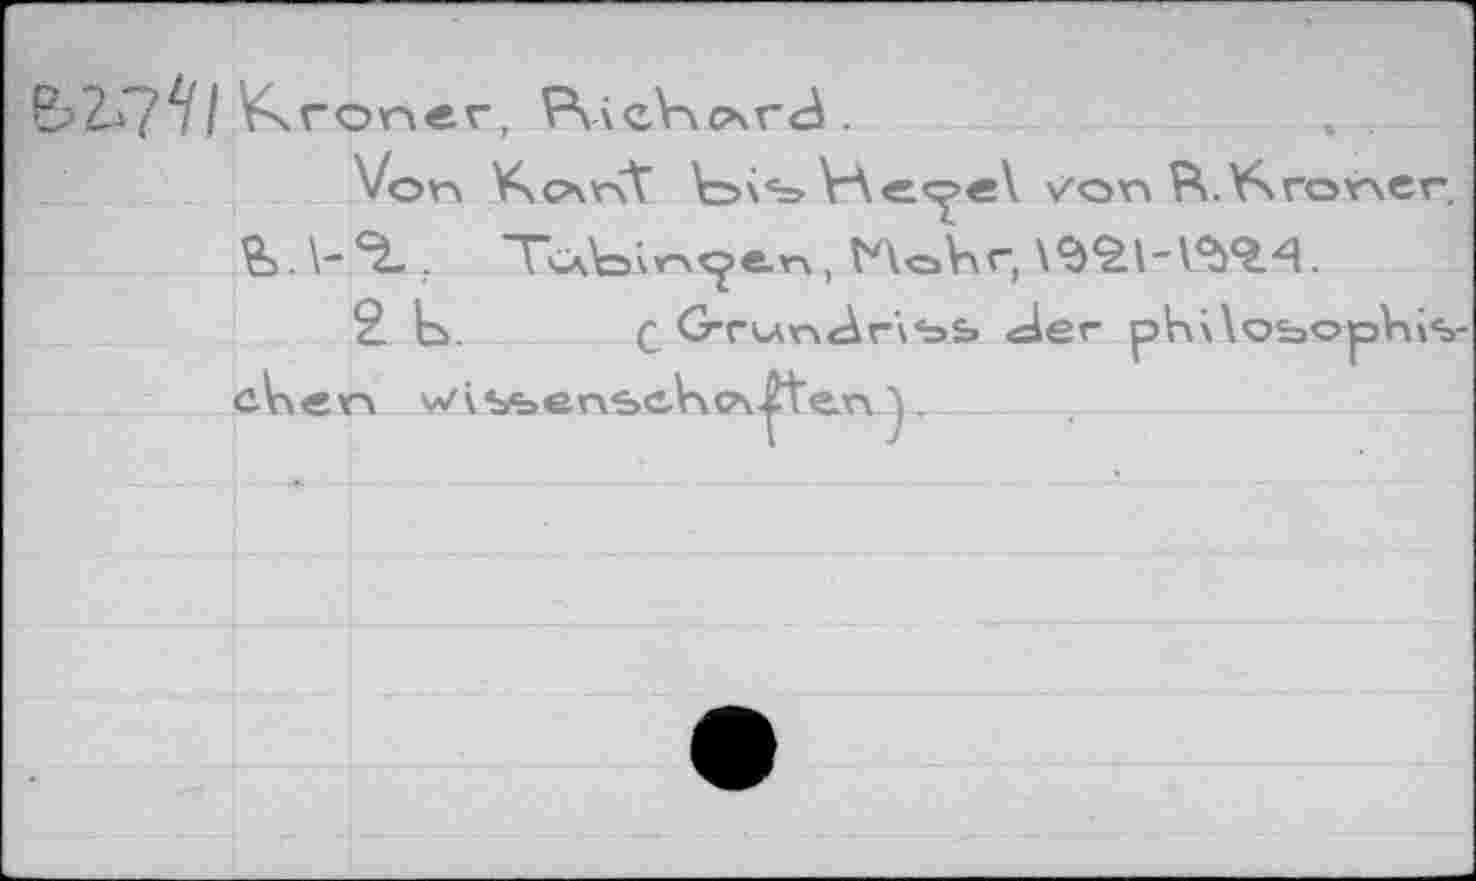 B2741 Kroner, Richard.
Von Kant bis Hegel von R. Kroner.
B. 1-2. Tübingen, Mohr, 1921-1924.
2 b. (Grundriss der philosophis-
chen wissenschaften).